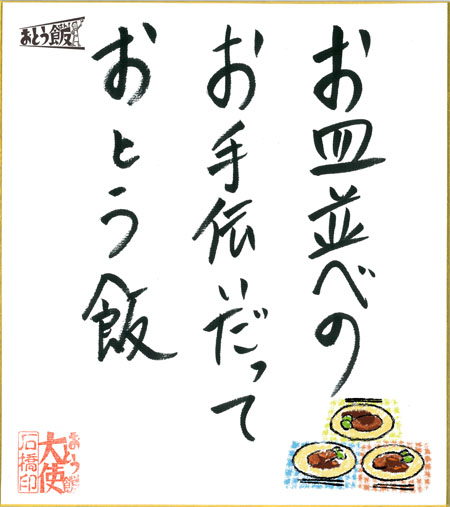 お皿並べの
お手伝いだって
おとう飯
おとう飯
おとう飯
大使
石橋印